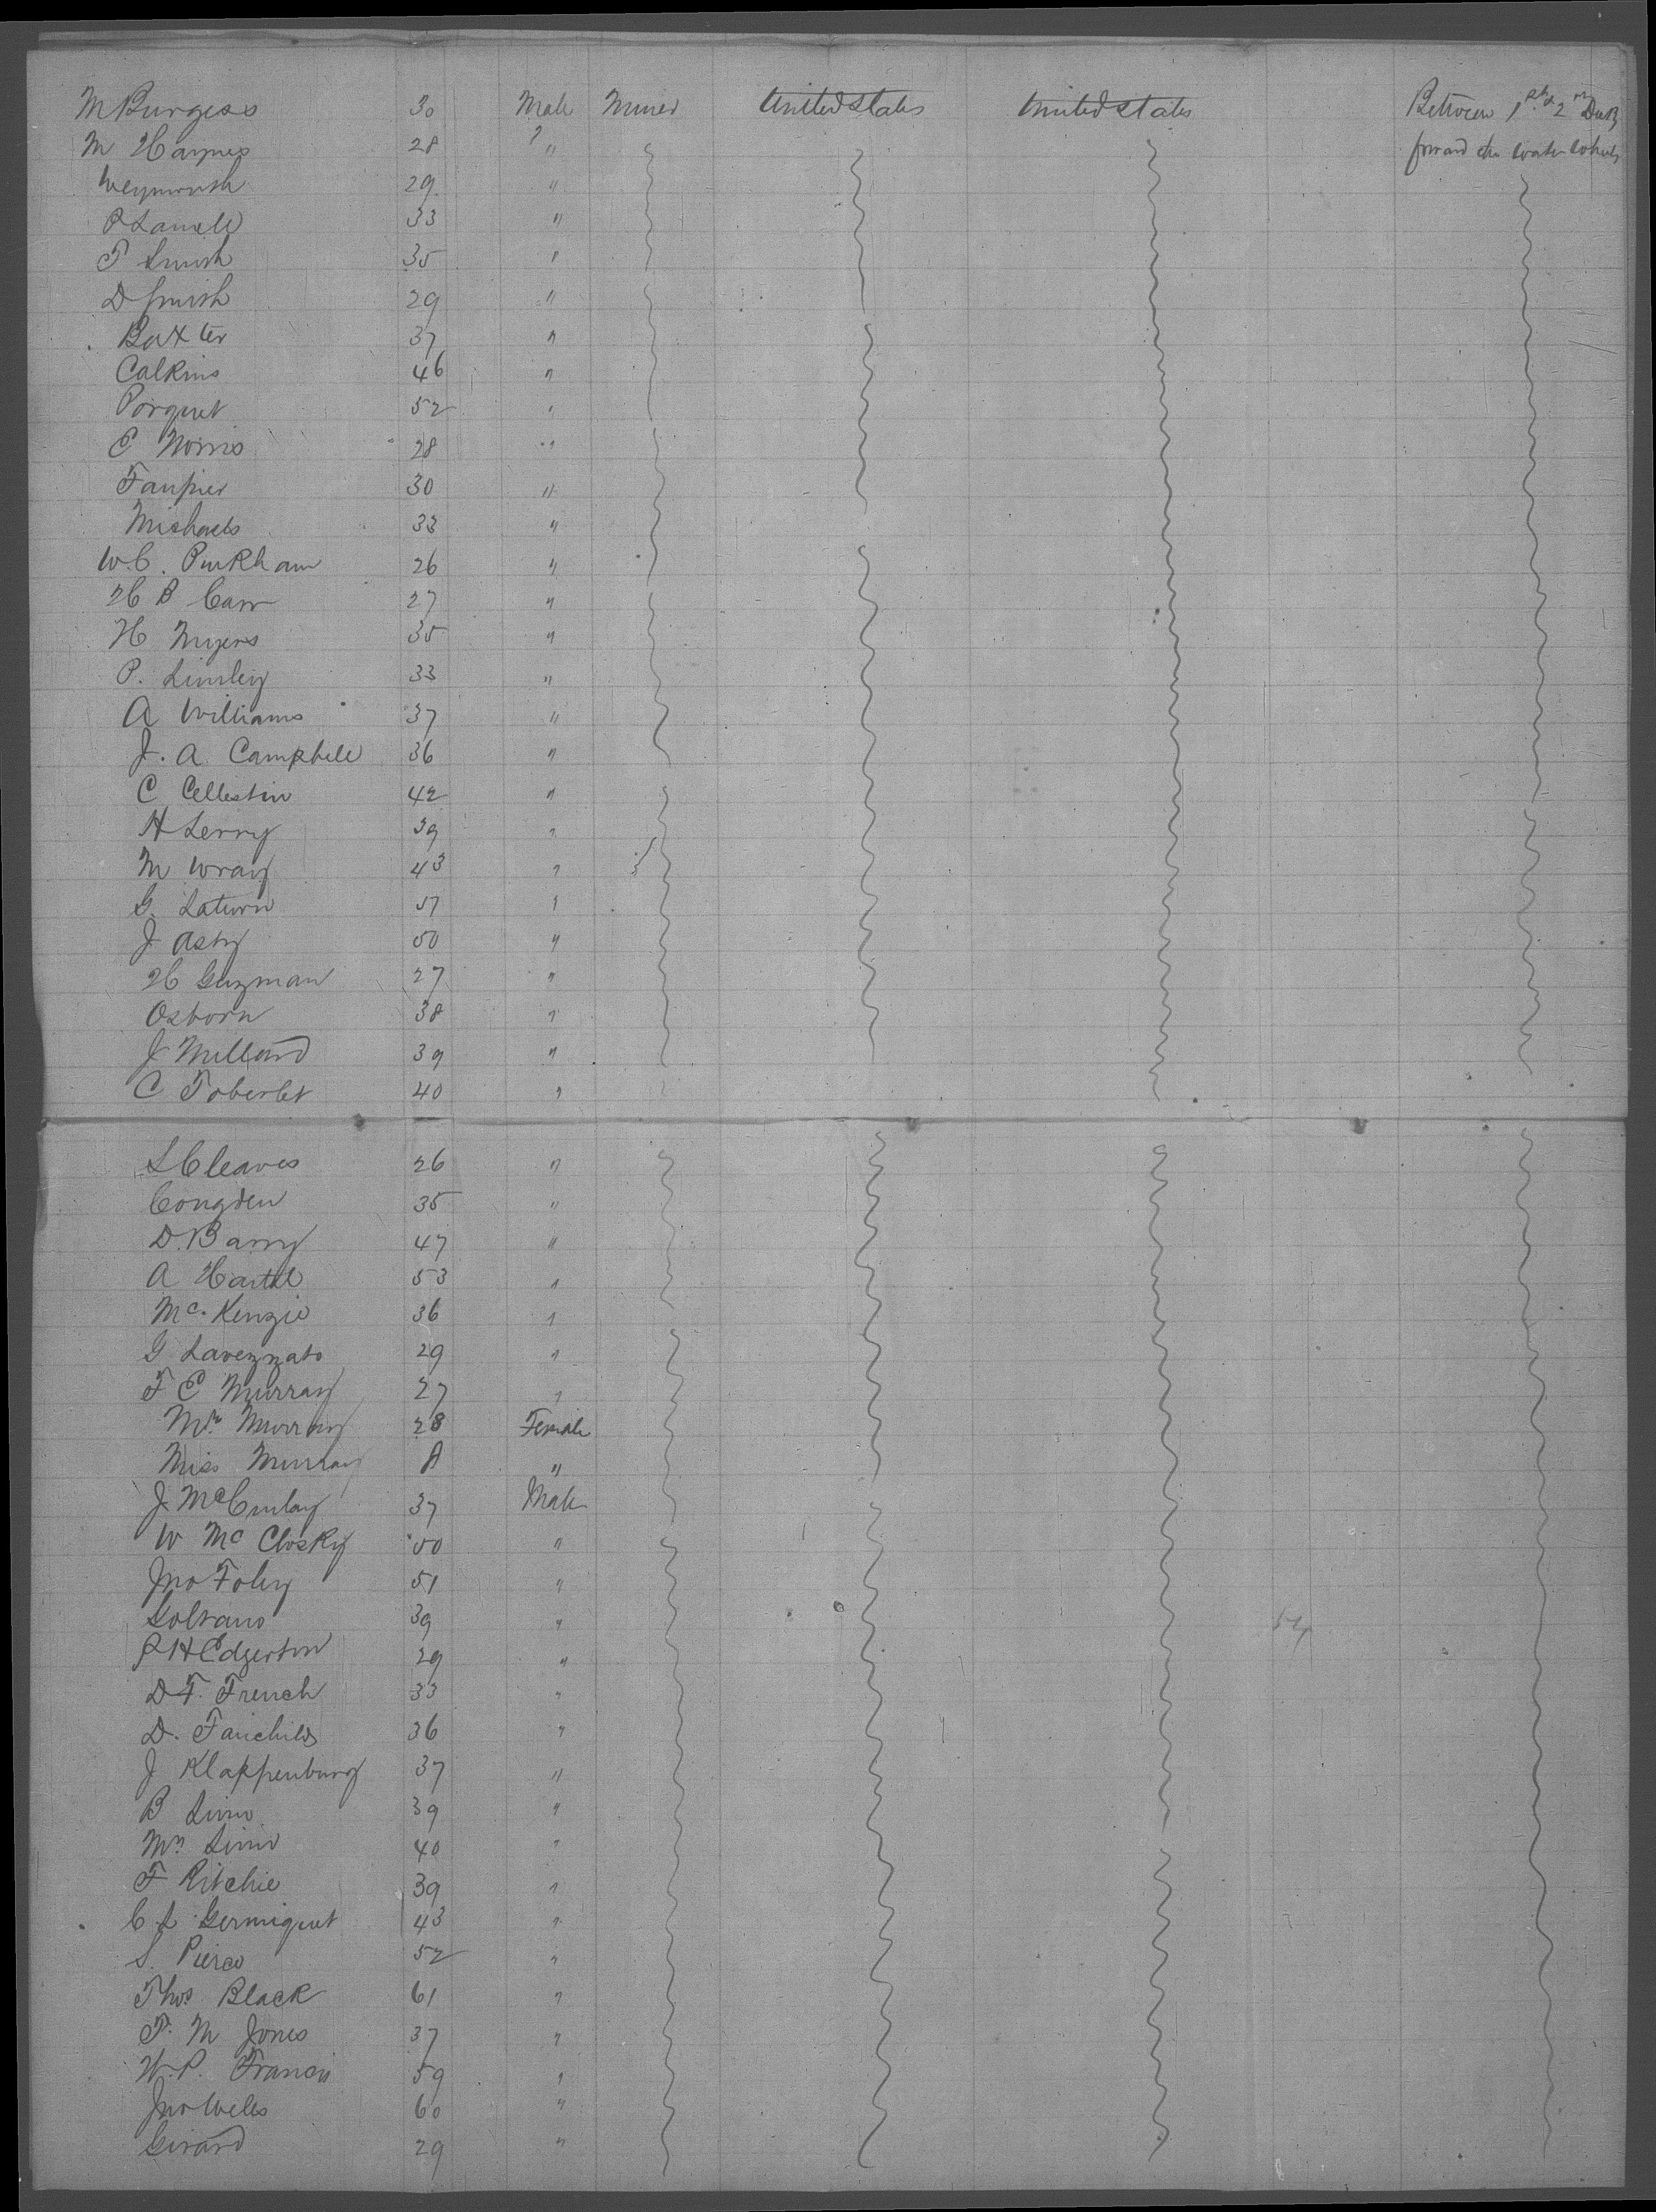 M Burgess 30 Male Miner United States United States Between 1st & 2nd Deck
M Haynes 28 " forward the water wheels
Weymouth 29 "
33 "
T Smith 35 "
D Smith 29 "
Baxter 37 "
Calkins 46 "
Porquet 52 "
C Norris 28 "
30 "
Michaels 33 "
W.C. 26 "
H B Carr 27 "
H Myers 35 "
P. Linsley 33 "
A Williams 37 "
J. A. Campbell 36 "
C Cellestin 42 "
H Lerry 39 "
M Wray 43 "
G. Laturn 57 "
J Asty 50 "
H Guzman 27 "
Osborn 38 "
J Millard 39 "
C Toberlet 40 "
S Cleaves 26 "
Congden 35 "
D. Barry 47 "
A Hartel 53 "
Mc. Kenzie 36 "
G Lavezzato 29 "
F C Murray 27 "
Mrs Murray 28 Female
Miss Murray "
J McCinlay 37 Male
W Mc Closky 50 "
Jno Foley 51 "
39 "
H Edgerton 29 "
D F. French 33 "
D. Fairchilds 36 "
J Klappenburg 37 "
B 39 "
40 "
F Ritchie 39 "
C L Germiquet 43 "
S. Pierce 52 "
Thos Black 61 "
T. M Jones 37 "
W. P. Francis 59 "
Jno Wells 60 "
Girard 29 "